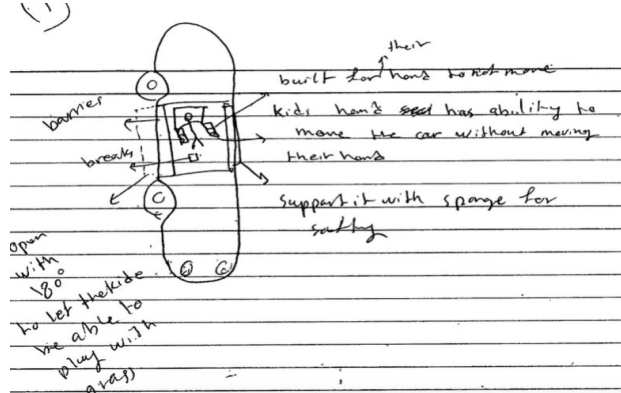 (1)
their
built for hand to not move
kids hand has ability to
move the car without moving
their hand
support it with sponge for
safty
barrier
breaks
open
with
180°
to let the kide
be able to
play with
grass